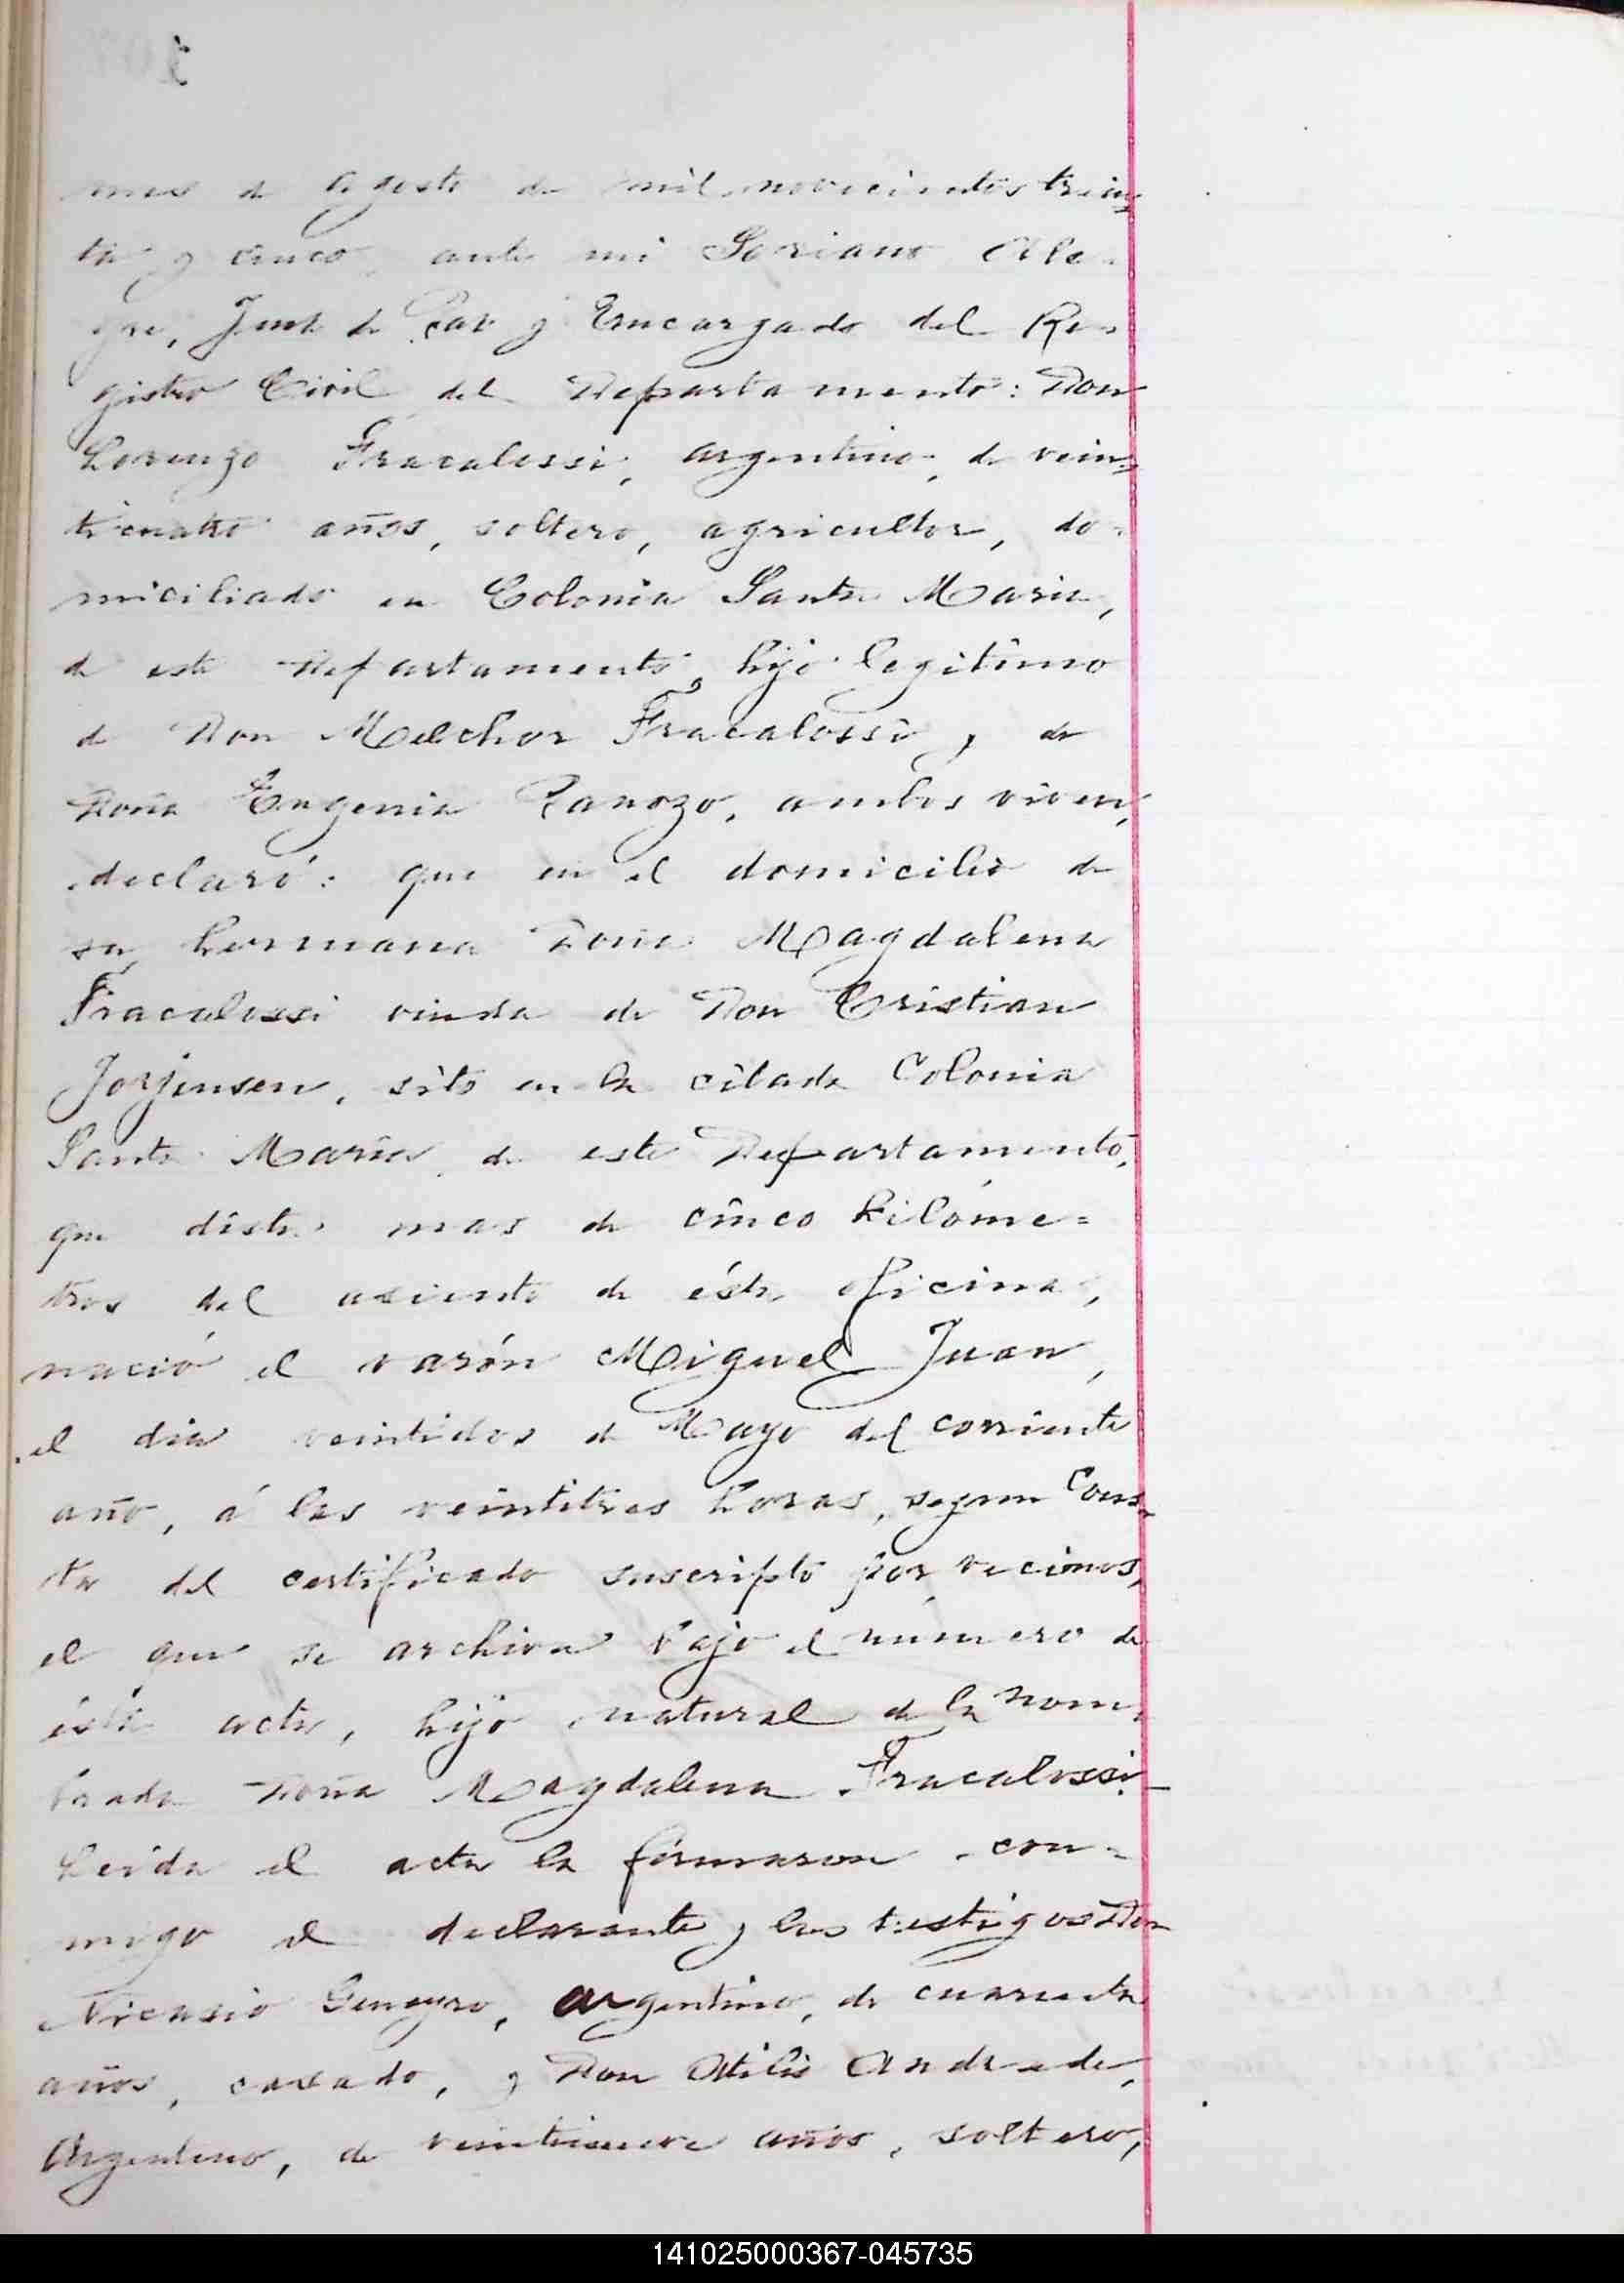 mes de Agosto de mil novecientos trein=
ta y cinco, ante mi Soriano Ale=
gre, Juez de Paz y Encargado del Re=
gistro Civil del Departamento: Don
Lorenzo Fracalossi, argentino, de vein=
ticuatro años, soltero, agricultor, do=
miciliado en Colonia Santa Maria,
de este Departamento, hijo legitimo
de Don Melchor Fracalossi y de
Doña Eugenia, ambos viven,
declaró: que en el domicilio de
su hermana Doña Magdalena
Fracalossi viuda de Don Cristian
Jorjensen, sito en la citada Colonia
Santa María, de este Departamento,
que dista mas de cinco kilóme=
tros del asiento de ésta oficina,
nació el varón Miguel Juan,
el dia veintidos de Mayo del corriente
año, á las veintitres horas, segun Cons=
ta del certificado suscripto por vecinos,
el que se archiva bajo el número de
ésta acta, hijo natural de la nom=
brada Doña Magdalena Fracalossi.—
Leída el acta la firmaron con=
migo el declarante y los testigos Don
Nicasio, argentino, de cuarenta
años, casado, y Don Atilio Andrade,
Argentino, de veintinueve años, soltero,
141025000367-045735